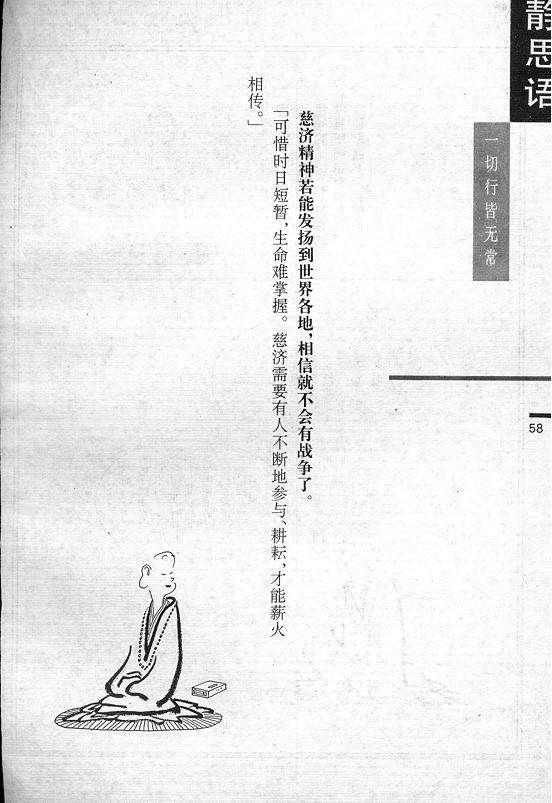 静思语
一切行皆无常
58
慈济精神若能发扬到世界各地，相信就不会有战争了。
「可惜时日短暂，生命难掌握。慈济需要有人不断地参与、耕耘，才能薪火
相传。」